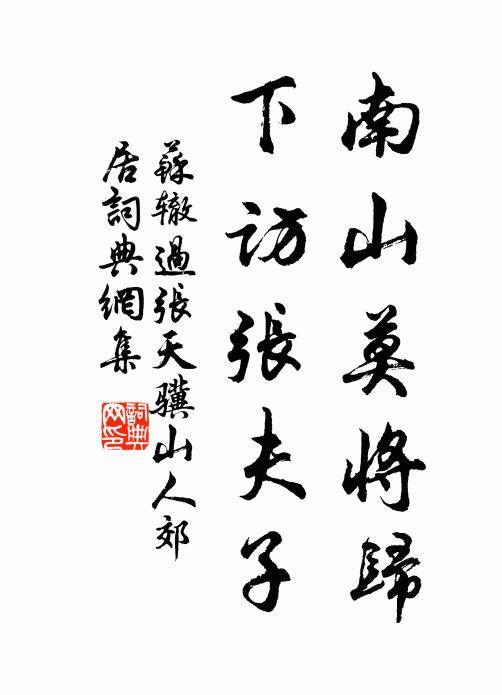 南山莫將歸
下訪張夫子
蘇辙過張天驥山人郊
居詞典網集
詞典网印